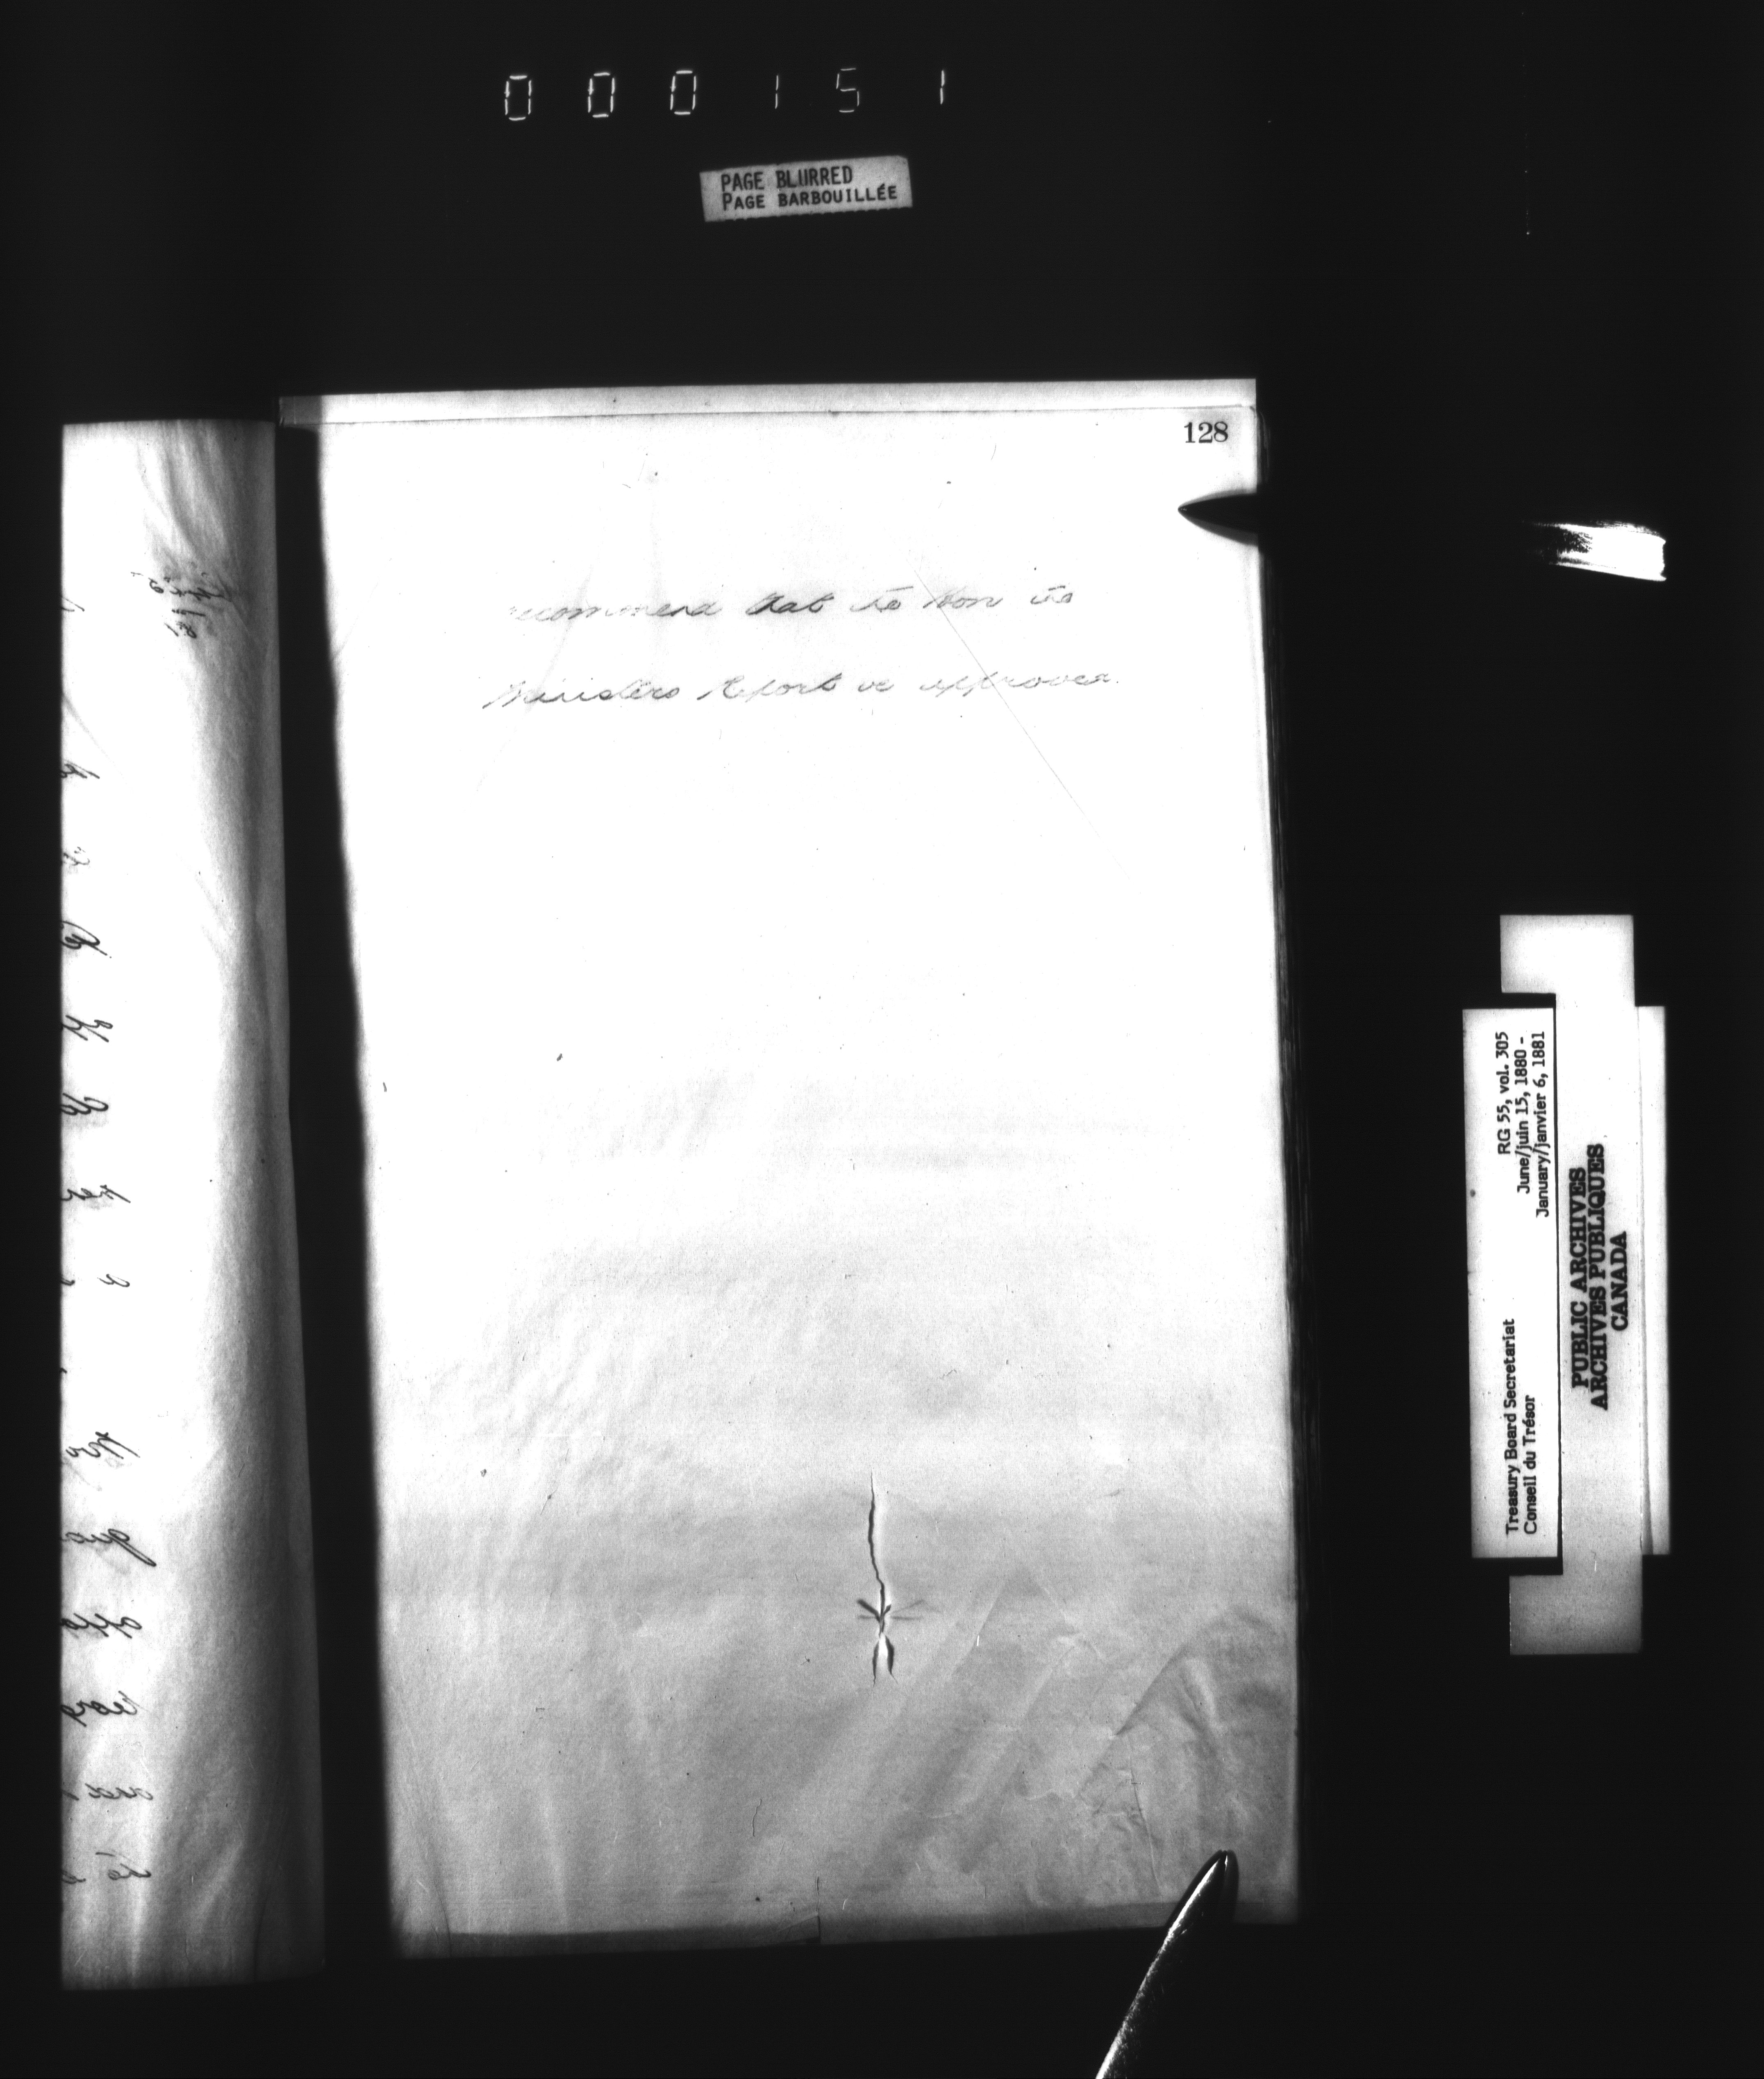 000151
PAGE BLURRED
PAGE BARBOUILLÉE
128
recommend that the Hon the
Ministers Report be approved.
RG 55, vol. 305
June/juin 15, 1880 -
January/janvier 6, 1881
Treasury Board Secretariat
Conseil du Trésor
PUBLIC ARCHIVES
ARCHIVES PUBLIQUES
CANADA